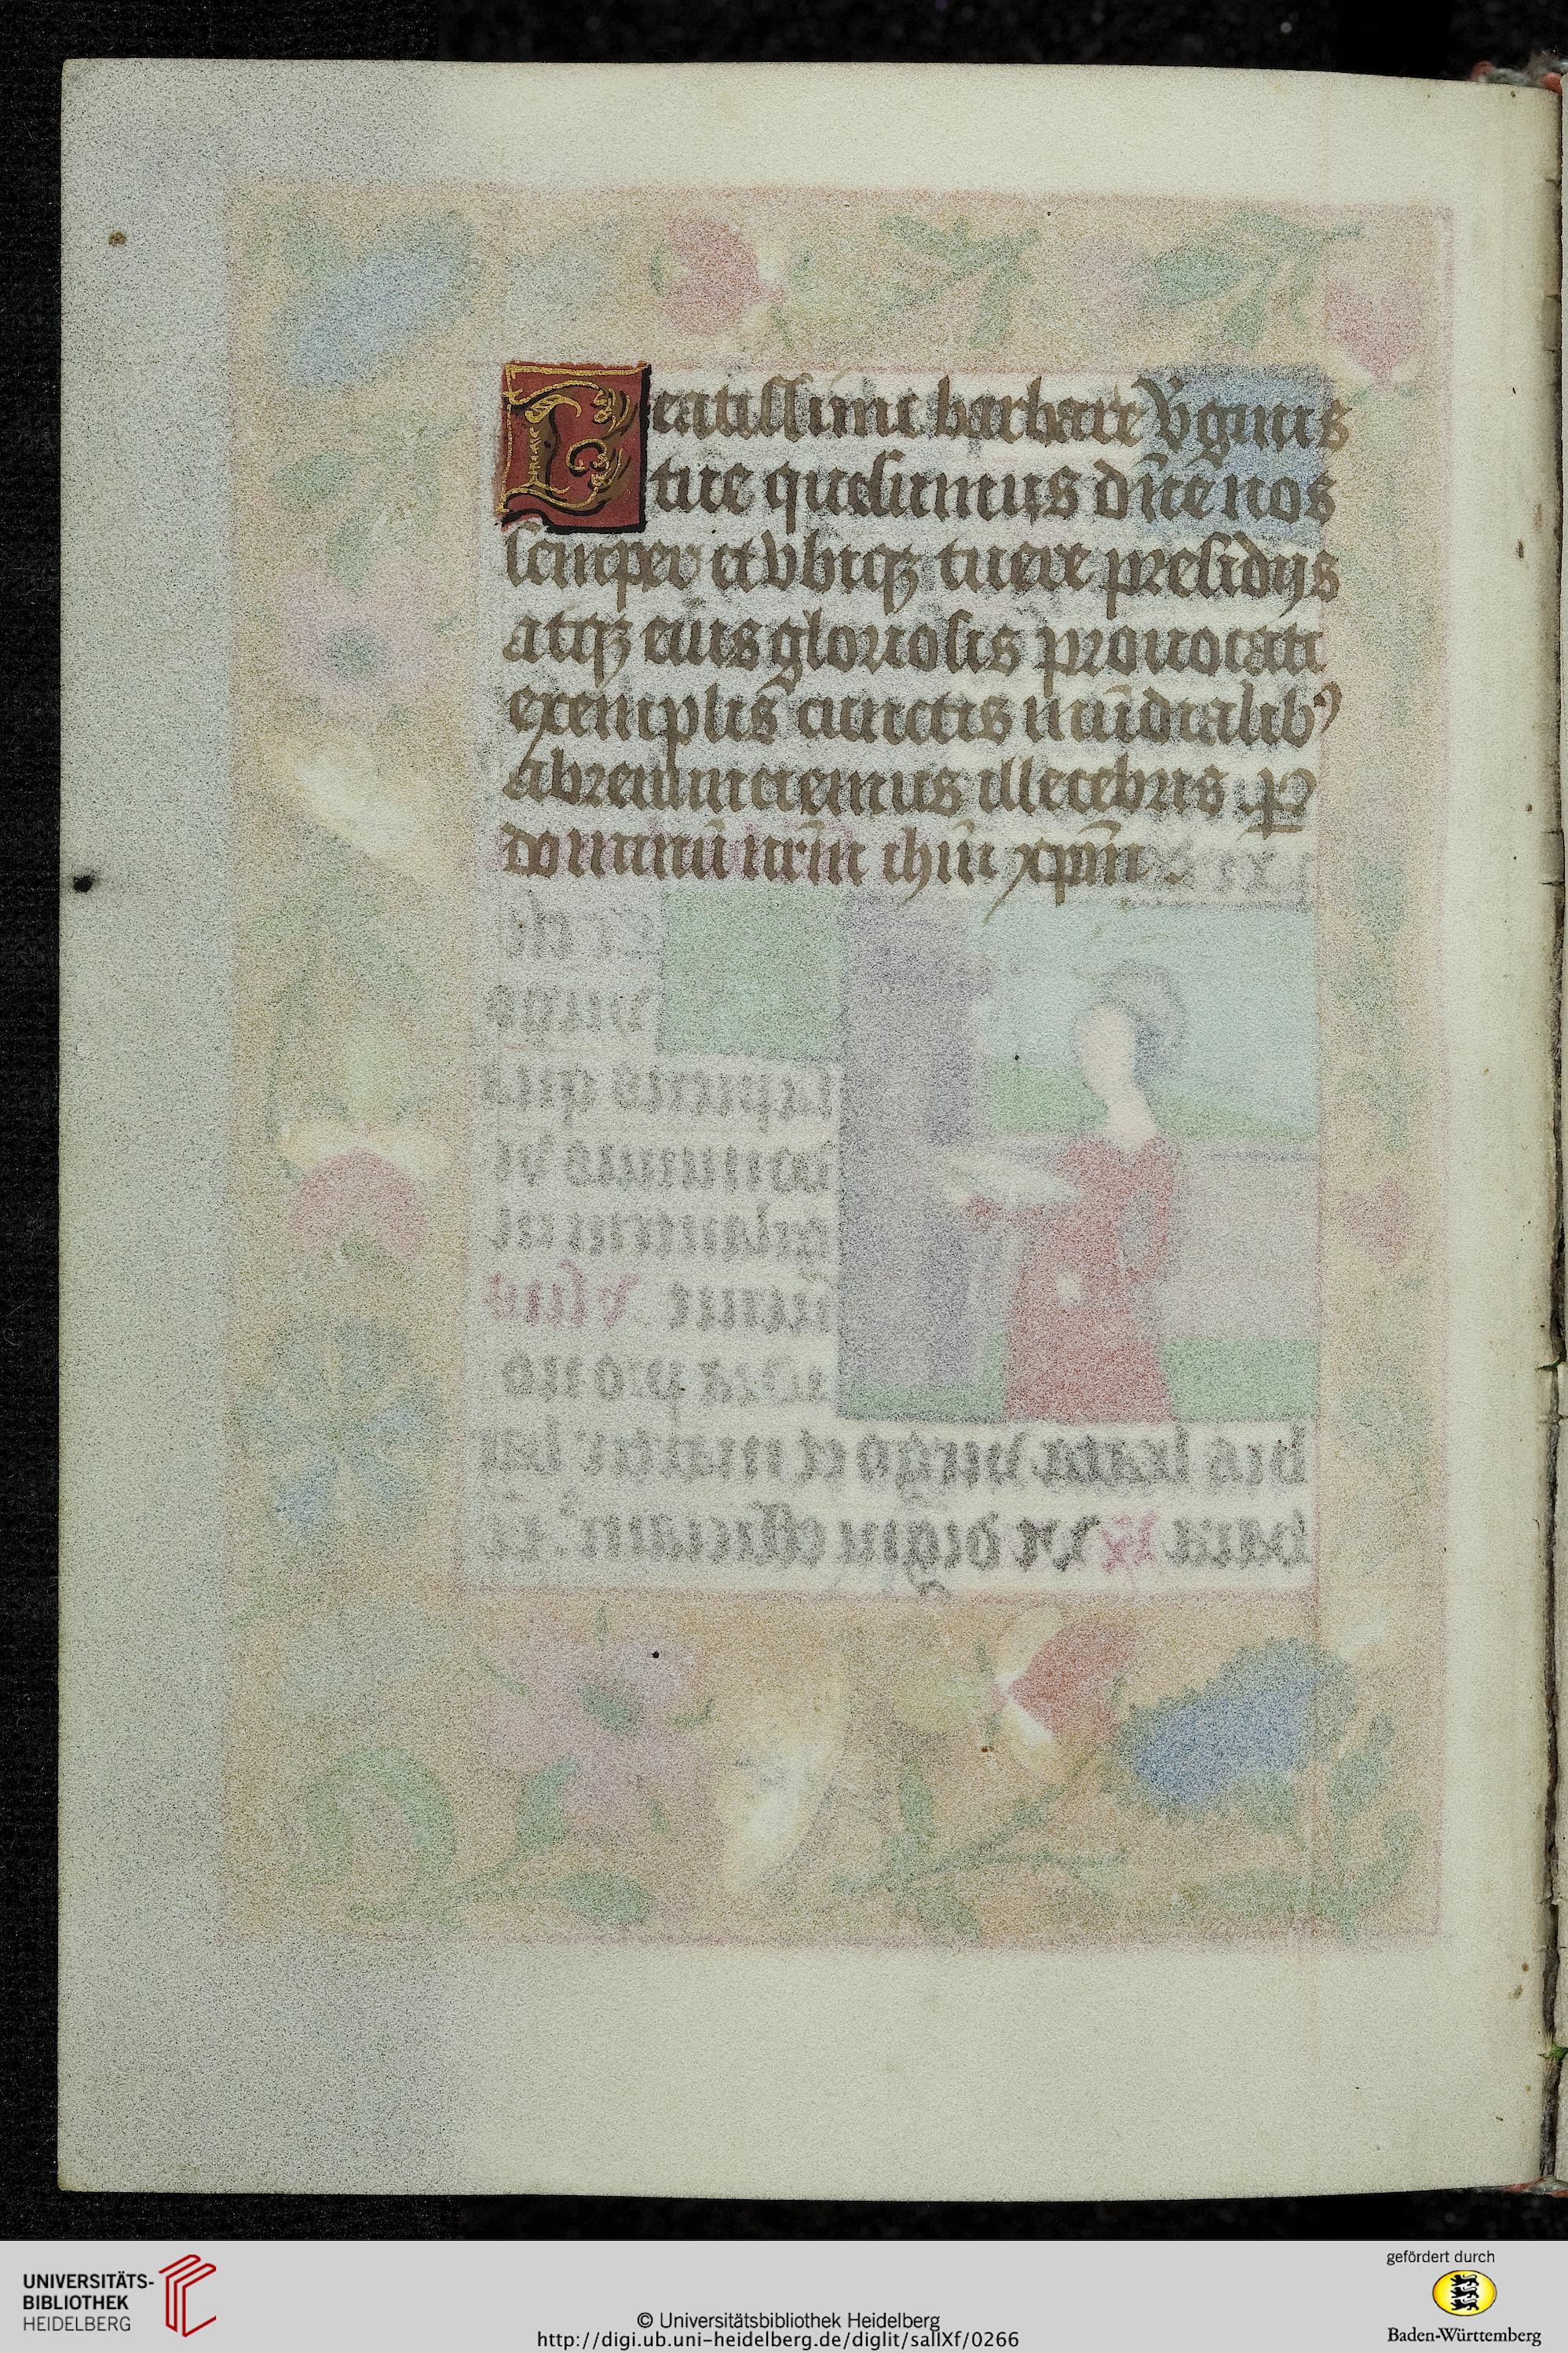 Beatissime barbare v̾ginis
tue quesumus dn̄e nos
semper et vbiqꝫ tuere presidijs
atqꝫ eius gloriosis prouocati
exemplis cunctis mūdialibꝰ
abrenunciemus illecebris ꝑ
dominū nr̄m ihm̄ xpm̄
UNIVERSITÄTS-
BIBLIOTHEK
HEIDELBERG
© Universitätsbibliothek Heidelberg
http://digi.ub.uni-heidelberg.de/diglit/sallXf/0266
gefördert durch
Baden-Württemberg